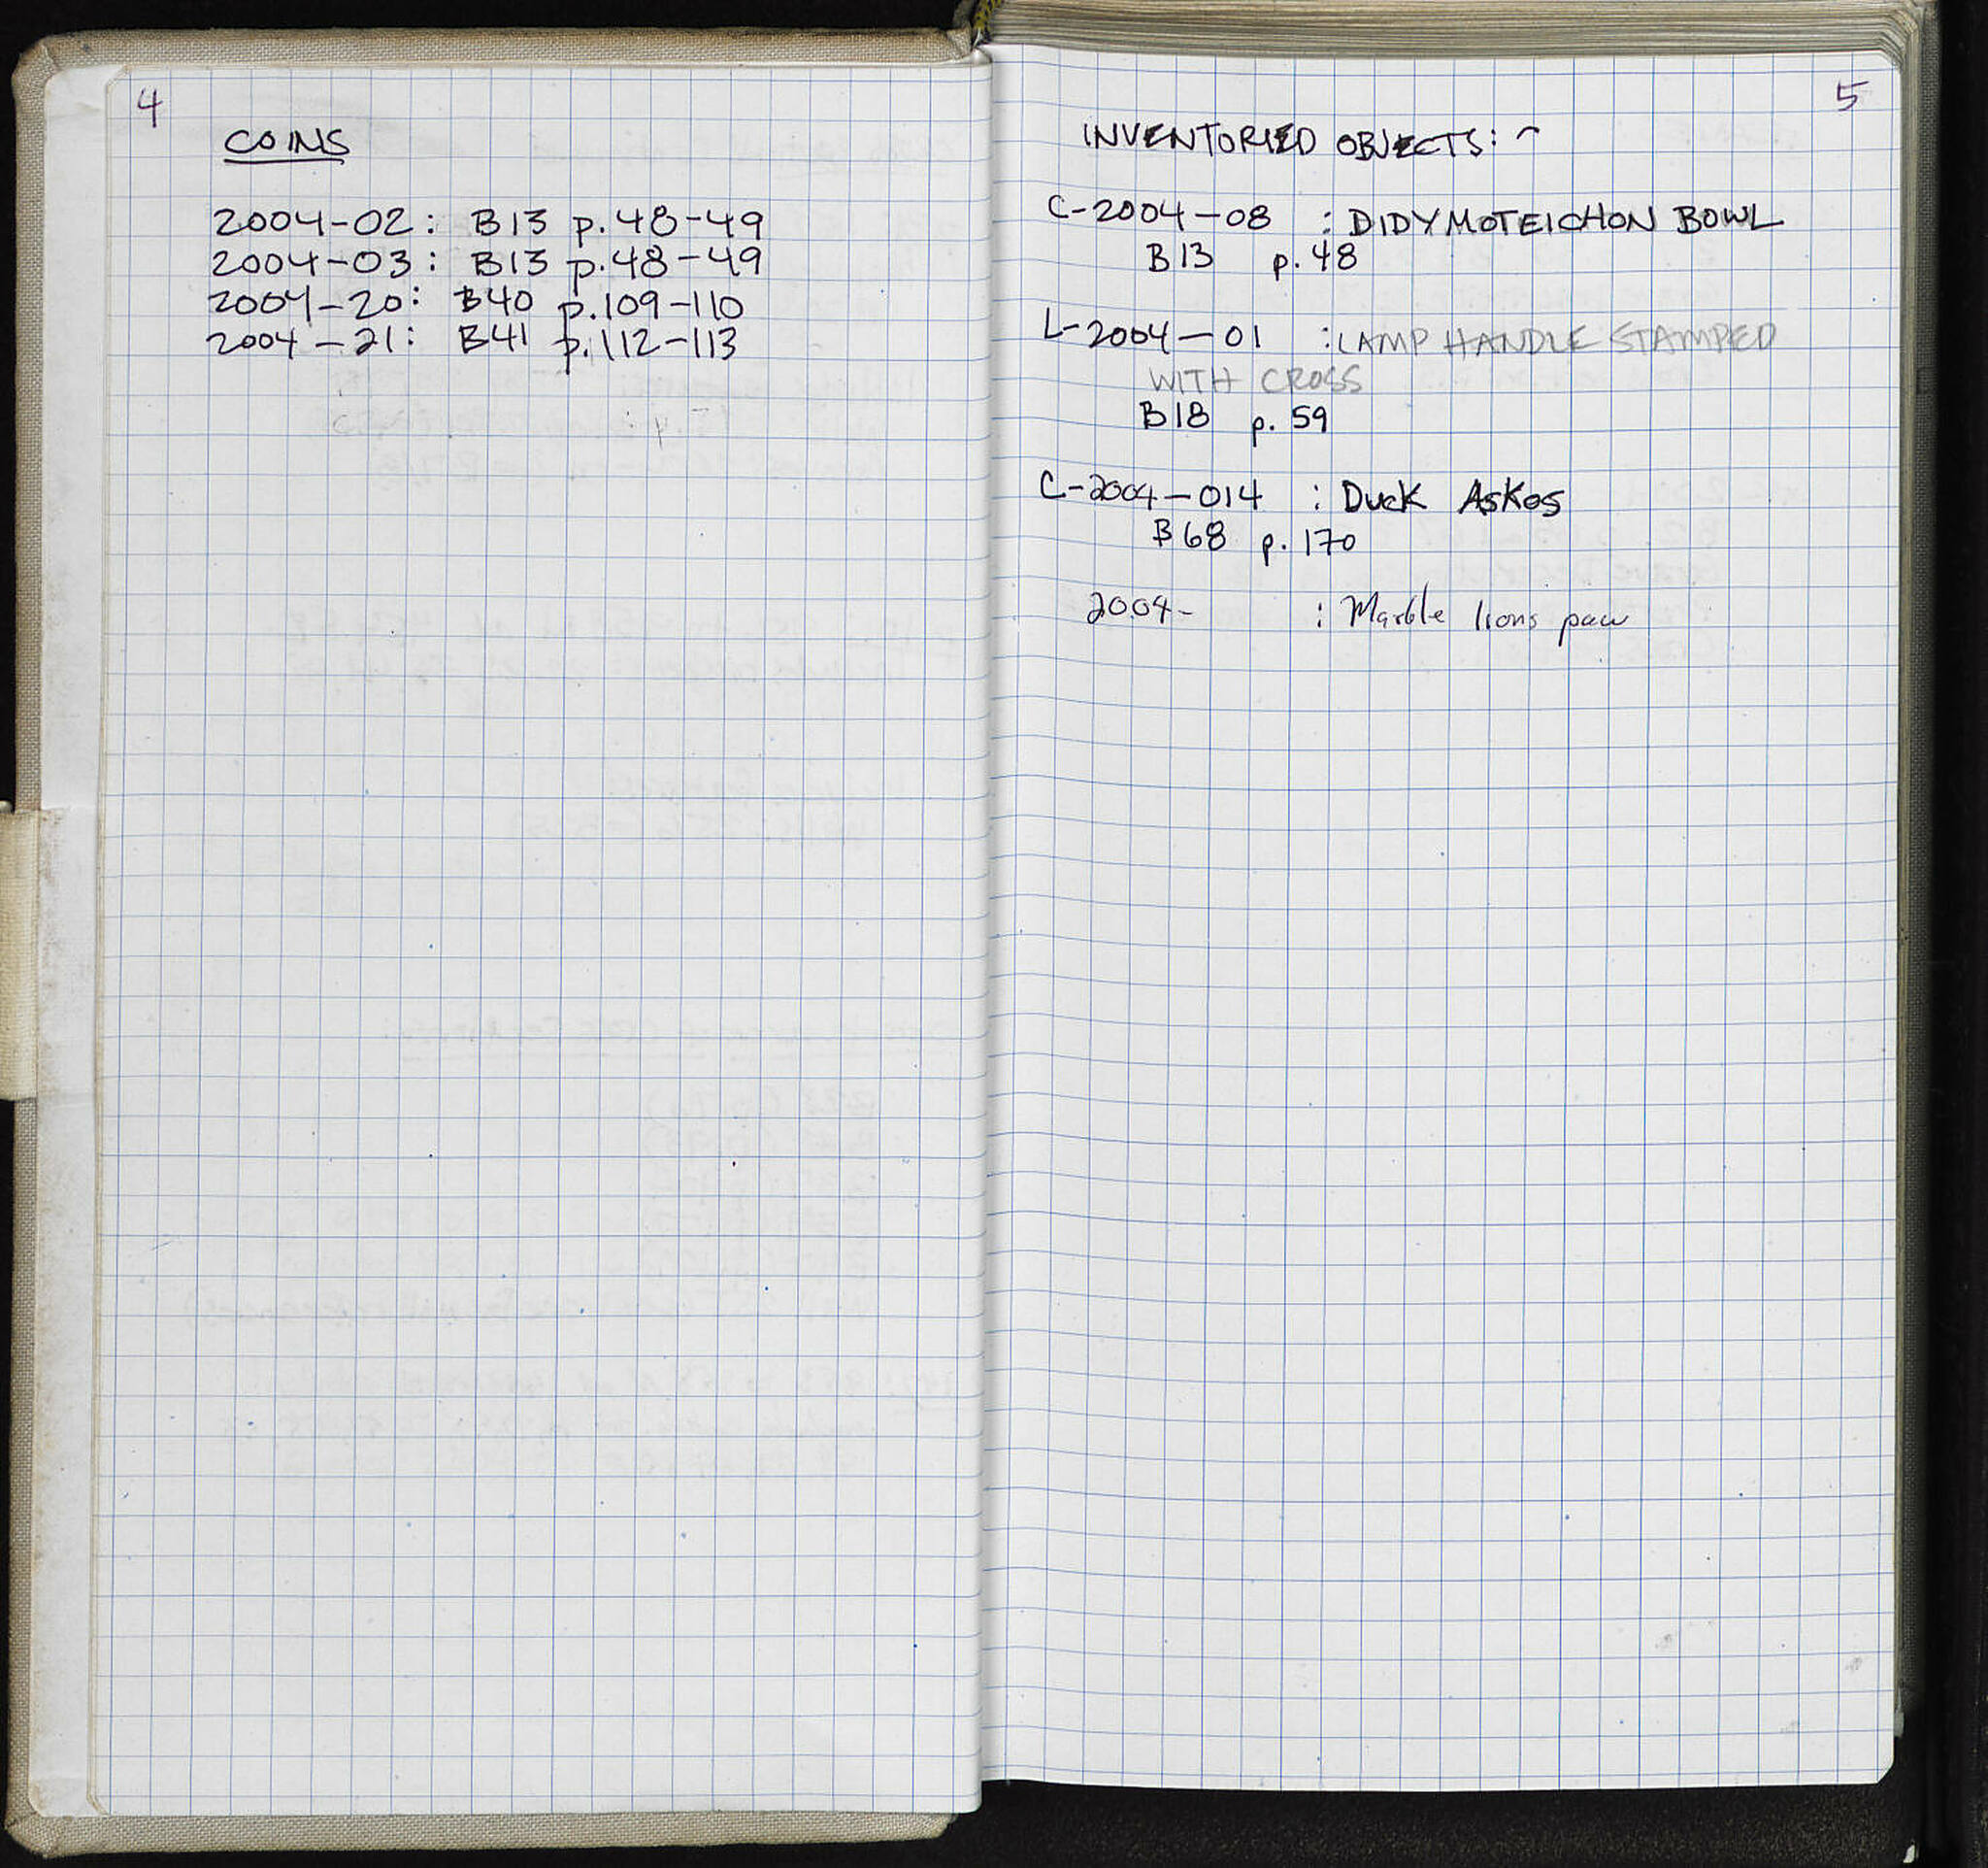 4
COINS
2004-02: B13 p.48-49
2004-03: B13 p.48-49
2004-20: B40 p.109-110
2004-21: B41 p.112-113
5
INVENTORIED OBJECTS: ~
C-2004-08 : DIDYMOTEICHON BOWL
B13 p.48
L-2004-01 : LAMP HANDLE STAMPED
WITH CROSS
B18 p. 59
C-2004-014 : Duck Askos
B68 p. 170
2004- : Marble lions paw